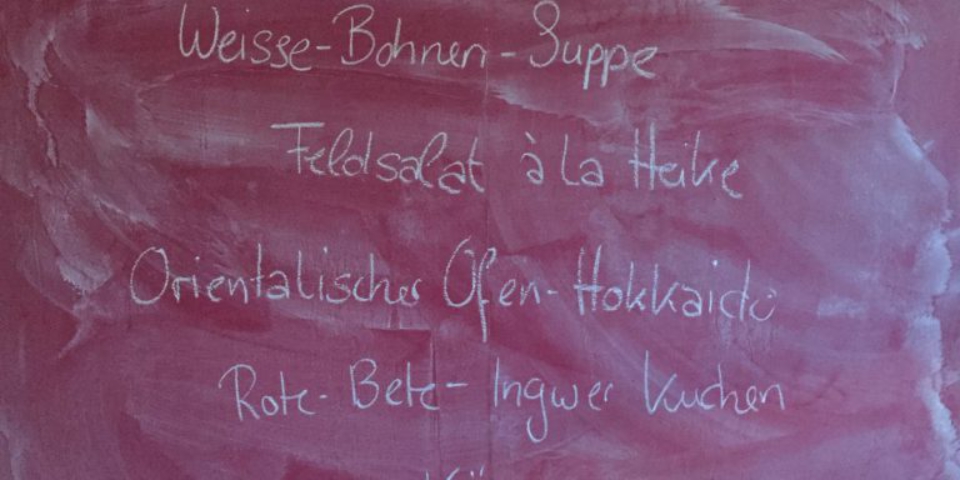 Weisse-Bohnen-Suppe
Feldsalat à la Heike
Orientalischer Ofen-Hokkaido
Rote-Bete-Ingwer Kuchen